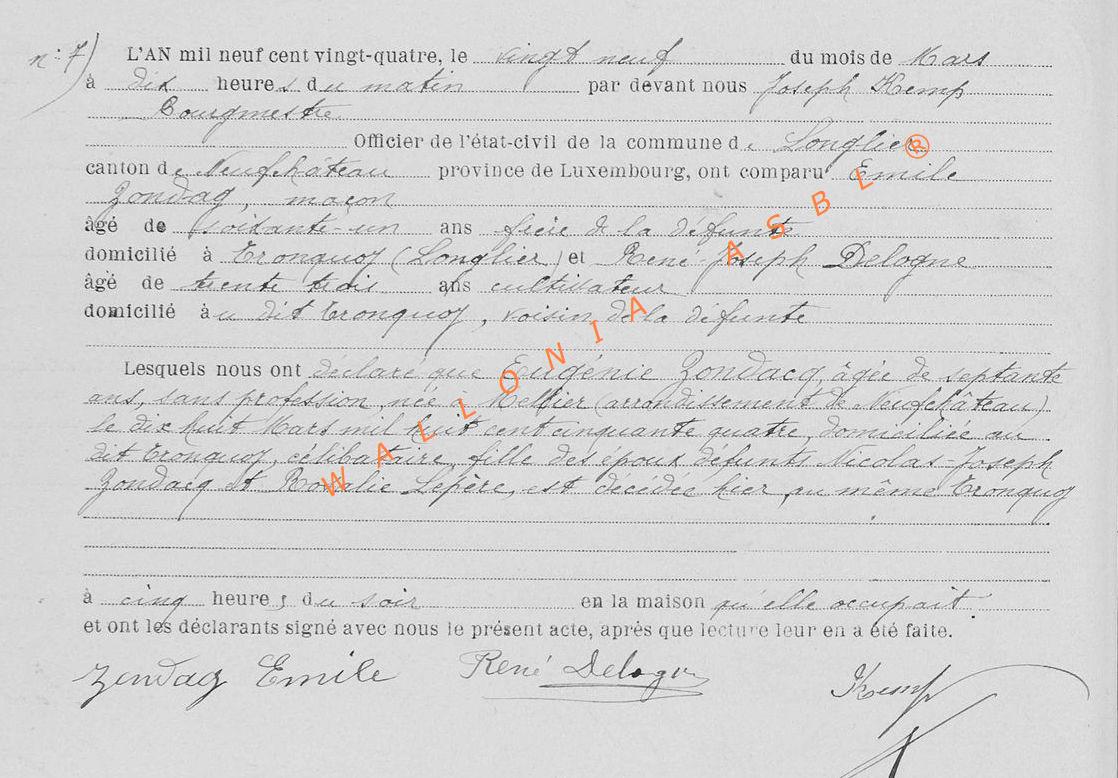 n: 7)
L'AN mil neuf cent vingt-quatre, le vingt neuf du mois de Mars
à dix heures du matin par devant nous Joseph Kemp
Bourgmestre
Officier de l'état-civil de la commune de Longlier
canton de Neufchâteau province de Luxembourg, ont comparu Emile
Zondag, maçon
âgé de soixante-un ans frère de la défunte
domicilié à Tronquoy (Longlier) et René-Joseph Delogne
âgé de trente trois ans cultivateur
domicilié au dit Tronquoy, voisin de la défunte
Lesquels nous ont déclaré que Eugénie Zondacq, âgée de septante
ans, sans profession, née à Mellier (arrondissement de Neufchâteau)
le dix huit Mars mil huit cent cinquante quatre, domiciliée au
dit Tronquoy, célibataire, fille des époux défunts Nicolas-Joseph
Zondacq et Rosalie Lepère, est décédée hier au même Tronquoy
à cinq heures du soir en la maison qu'elle occupait
et ont les déclarants signé avec nous le présent acte, après que lecture leur en a été faite.
Zondag Emile René Delogne Kemp
WALLONIA ASBL ®